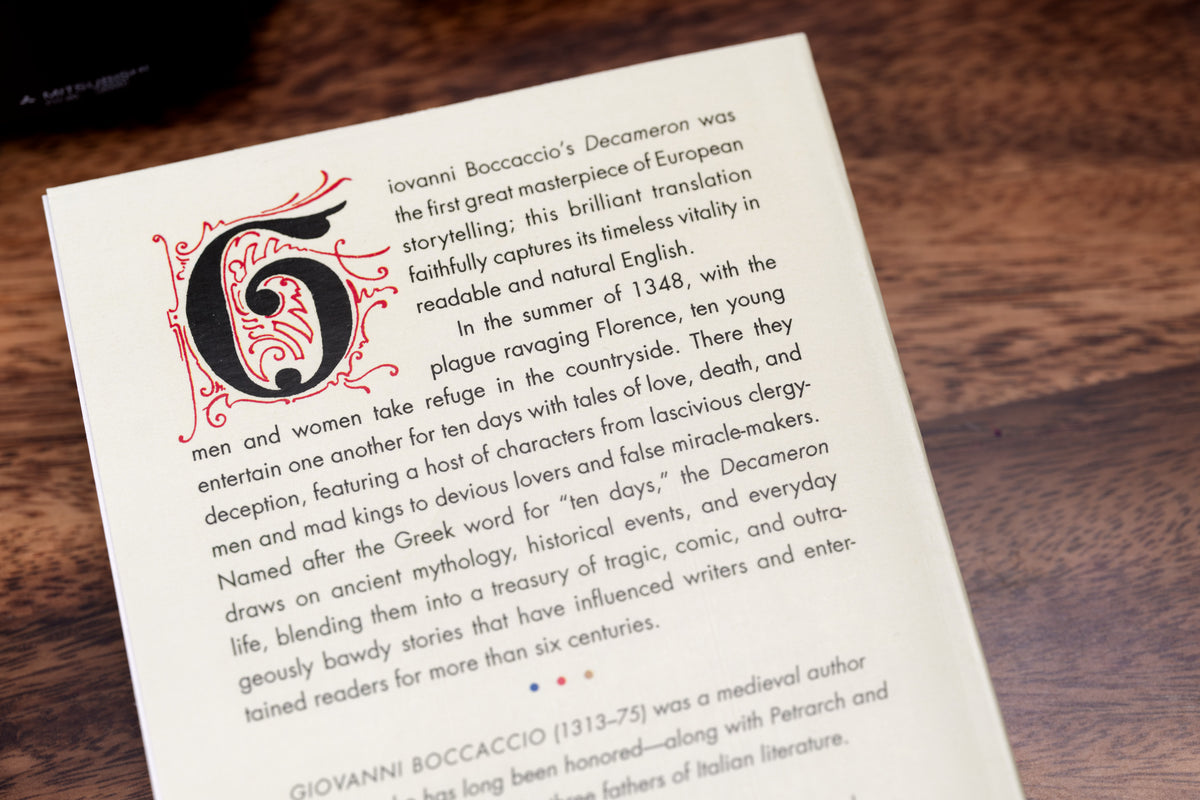 MITSUBISHI
Giovanni Boccaccio's Decameron was
the first great masterpiece of European
storytelling; this brilliant translation
faithfully captures its timeless vitality in
readable and natural English.
In the summer of 1348, with the
plague ravaging Florence, ten young
men and women take refuge in the countryside. There they
entertain one another for ten days with tales of love, death, and
deception, featuring a host of characters from lascivious clergy-
men and mad kings to devious lovers and false miracle-makers.
Named after the Greek word for “ten days,” the Decameron
draws on ancient mythology, historical events, and everyday
life, blending them into a treasury of tragic, comic, and outra-
geously bawdy stories that have influenced writers and enter-
tained readers for more than six centuries.
GIOVANNI BOCCACCIO (1313–75) was a medieval author
has long been honored—along with Petrarch and
three fathers of Italian literature.